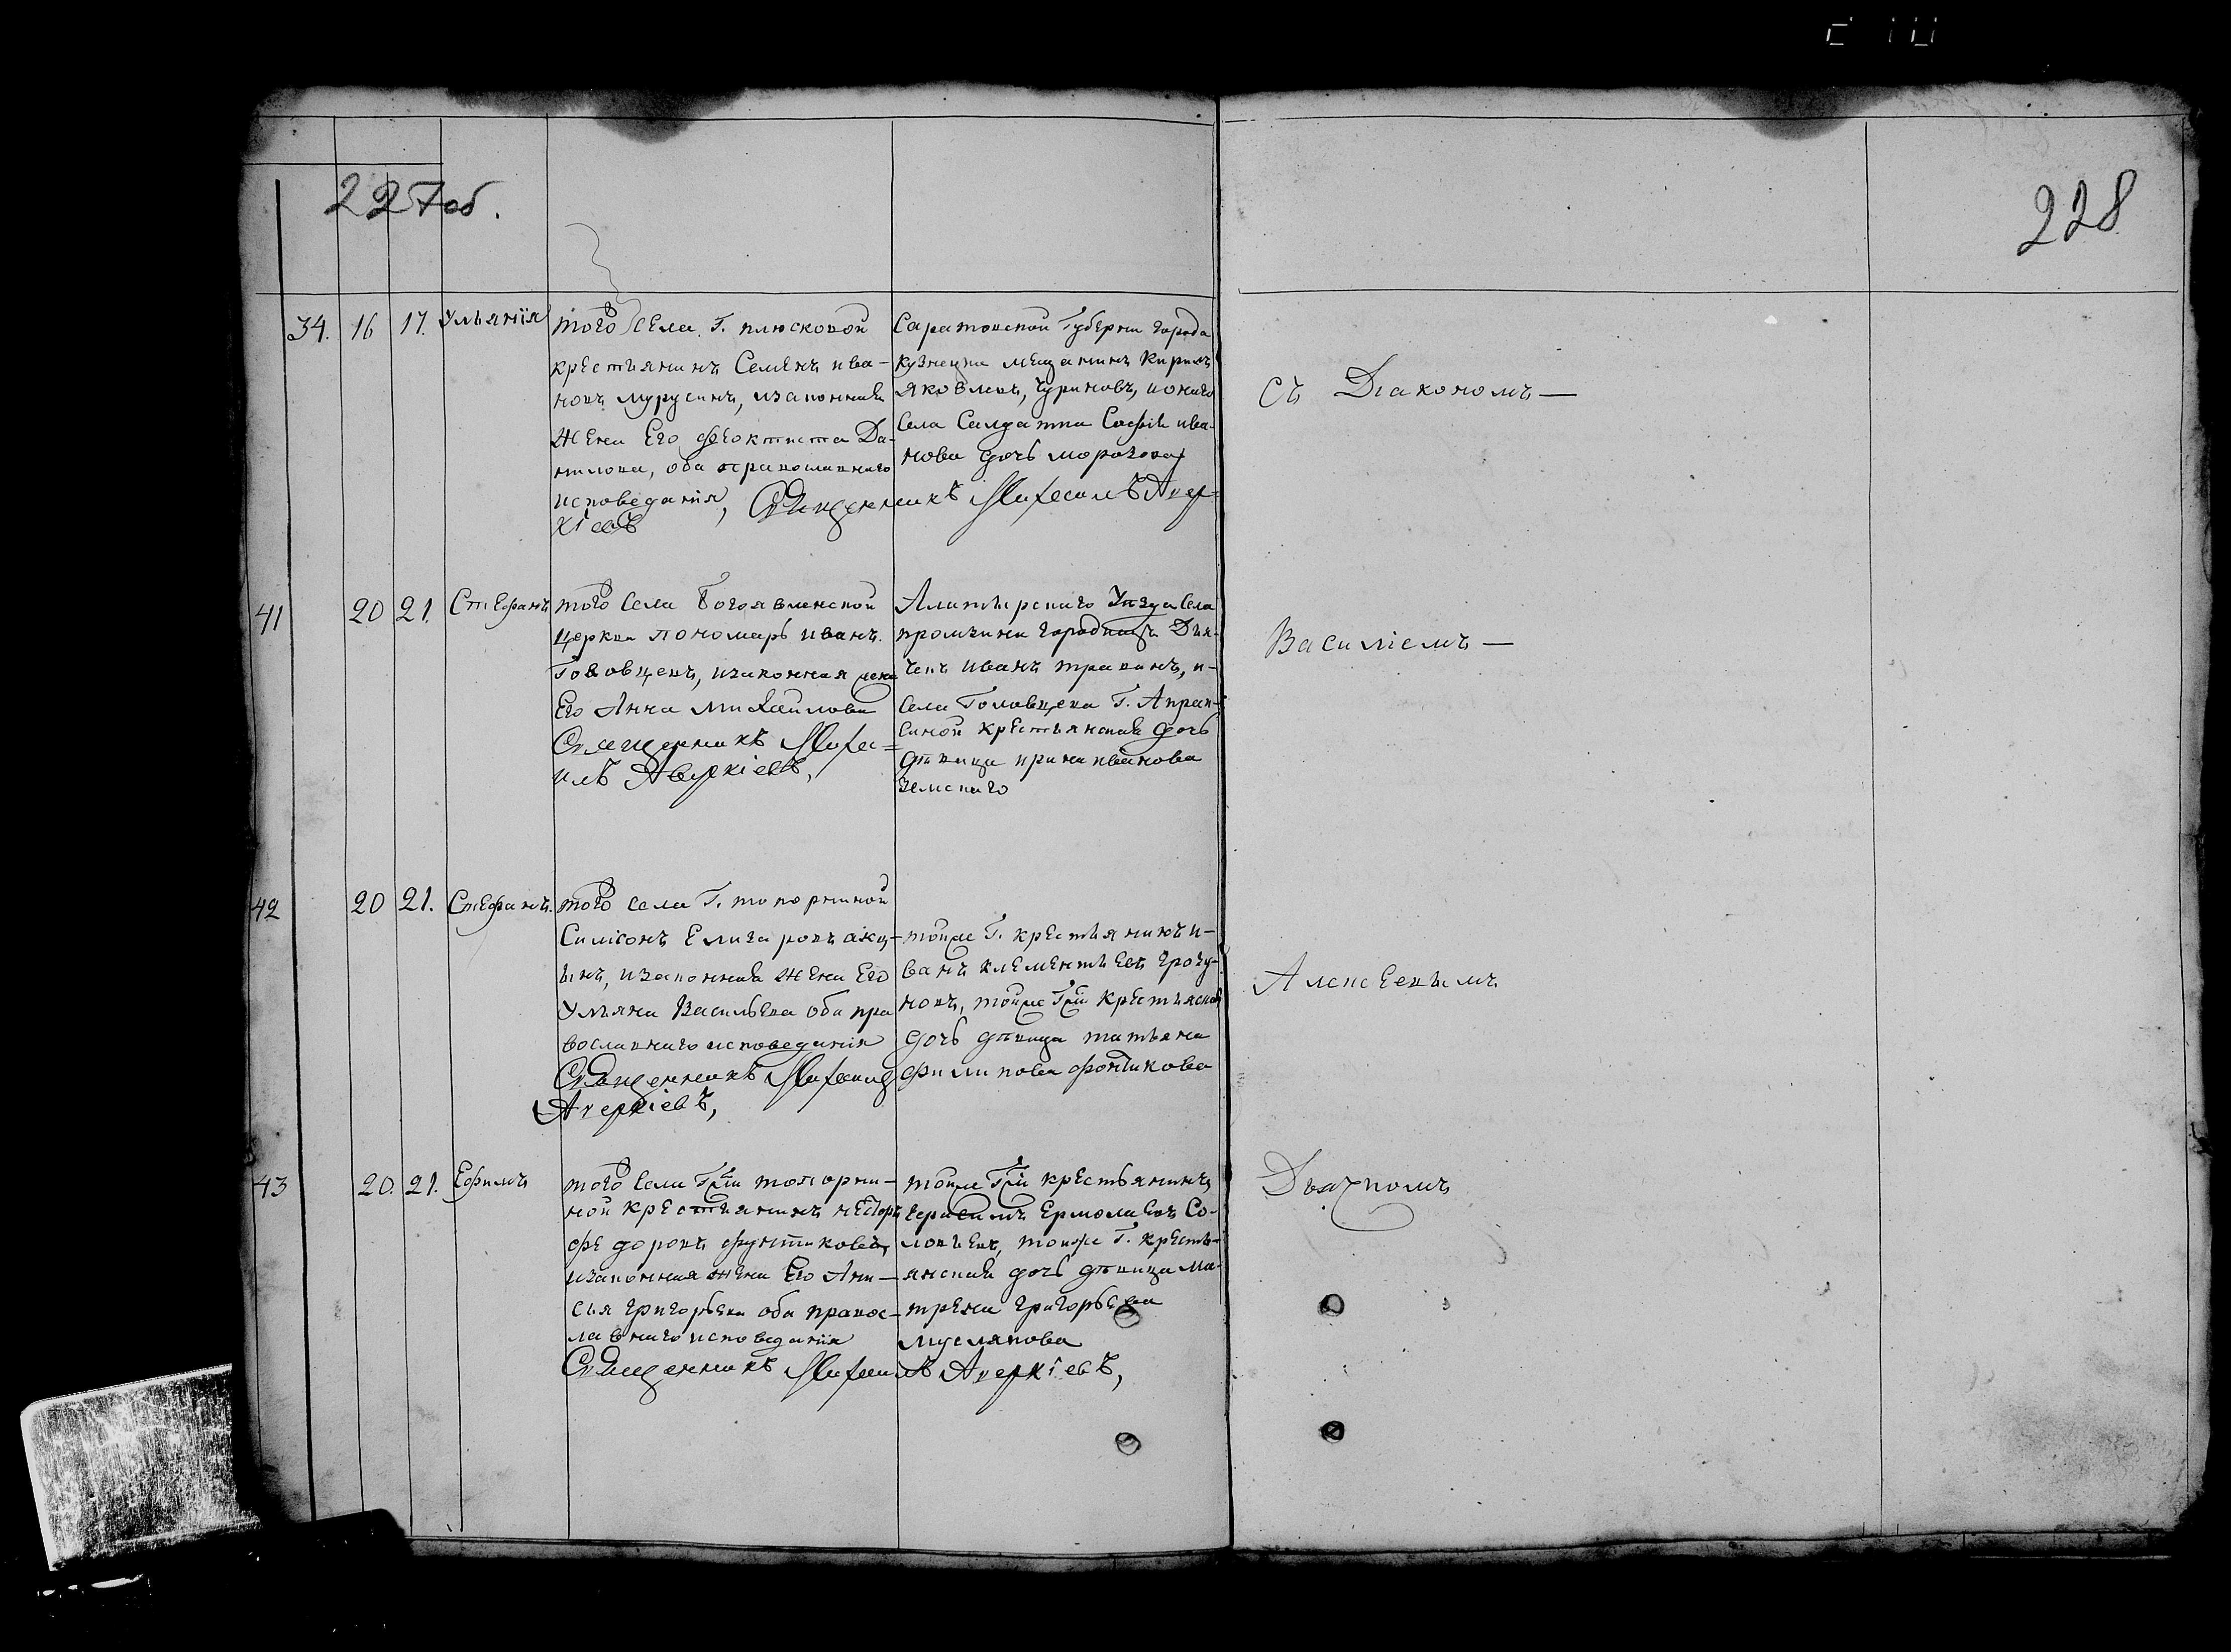 227об.
228
34. 16 17. Ульянія
того села Г. плюсковой
крестьянинъ Семенъ ива-
новъ мурусинъ, изаконная
жена Его феоктиста Да-
нилова, оба православнаго
исповеданія, Священникъ Михаилъ Авер-
кіевъ
Саратовской Губерни города
кузнецка мещанинъ Кирилъ
Яковлевъ, Чуриновъ, ионаго
села Салдатка Софья ива-
нова дочь морозова
Съ Діакономъ —
41 20 21. Стефанъ
того села Богоявленской
церкви пономарь иванъ
Головцевъ, изаконная жена
Его Анна михайлова
Священникъ Миха=
илъ Аверкіевъ,
Алатырскаго Уѣзда села
промзина городища Дья-
чекъ иванъ травинъ, и-
села Головцева Г. Апрак-
синой крестьянская дочь
дѣвица ирина иванова
земскаго
Василіемъ —
42 20 21. Стефанъ.
того села Г. топорниной
Симіонъ Елизаровъ
изаконная жена Его
Ульяна Васильева оба пра
вославнаго исповеданія
Священникъ Михаилъ
Аверкіевъ,
тойже Г. крестьянинъ и-
ванъ клементьевъ
тойже Гжи крестьянская
дочь дѣвица татьяна
филипова
Алексеевымъ
43 20. 21. Ефимъ
того села Гжи топорни-
ной крестьянинъ несторъ
федоровъ
изаконная жена Его Ани-
сья григорьева оба правос-
лавнаго исповеданія
Священникъ Михаилъ Аверкіевъ,
тойже Гжи крестьянинъ
герасимъ Ермолаевъ Со-
ловьевъ, тойже Г. кресть-
янская дочь дѣвица ма-
трена григорьева
муслякова
Дьячкомъ